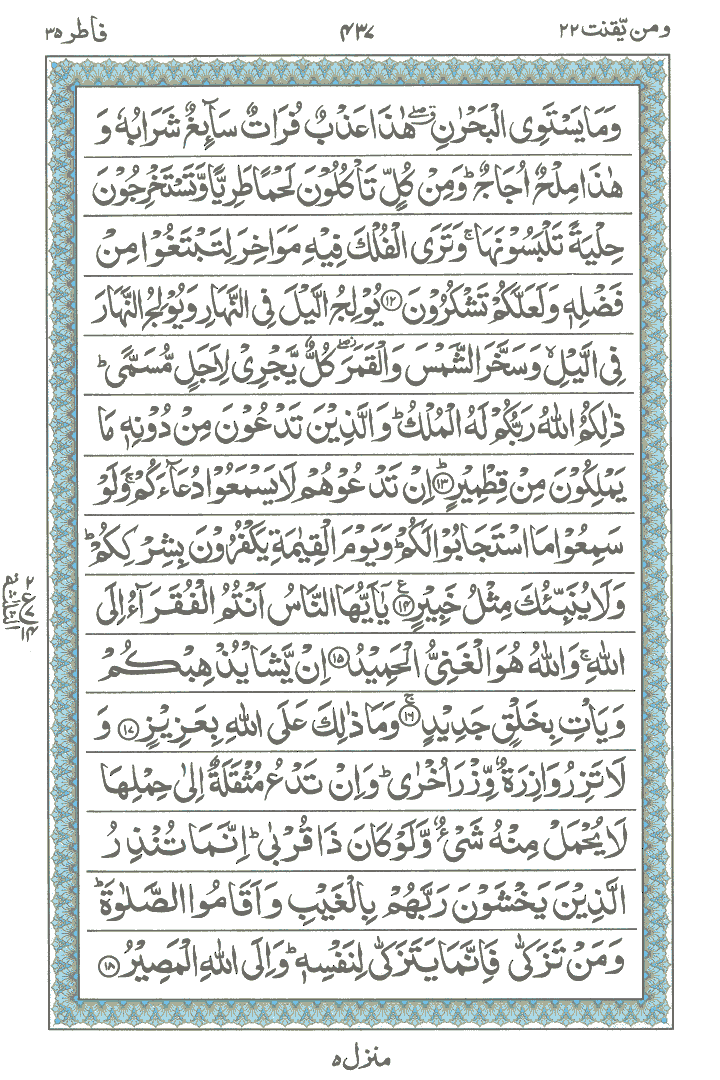 ومن یّقنت ۲۲
۴۳۷
فاطر ۳۵
وَمَا يَسْتَوِى الْبَحْرٰنِ ۖۗ هٰذَا عَذْبٌ فُرَاتٌ سَآئِغٌ شَرَابُهٗ وَ
هٰذَا مِلْحٌ اُجَاجٌ ؕ وَمِنْ كُلٍّ تَاْكُلُوْنَ لَحْمًا طَرِيًّا وَّتَسْتَخْرِجُوْنَ
حِلْيَةً تَلْبَسُوْنَهَا ۚ وَتَرَى الْفُلْكَ فِيْهِ مَوَاخِرَ لِتَبْتَغُوْا مِنْ
فَضْلِهٖ وَلَعَلَّكُمْ تَشْكُرُوْنَ ۝۱۲ يُوْلِجُ الَّيْلَ فِى النَّهَارِ وَيُوْلِجُ النَّهَارَ
فِى الَّيْلِ ۙ وَسَخَّرَ الشَّمْسَ وَالْقَمَرَ ۖؗ كُلٌّ يَّجْرِىْ لِاَجَلٍ مُّسَمًّى ؕ
ذٰلِكُمُ اللّٰهُ رَبُّكُمْ لَهُ الْمُلْكُ ؕ وَالَّذِيْنَ تَدْعُوْنَ مِنْ دُوْنِهٖ مَا
يَمْلِكُوْنَ مِنْ قِطْمِيْرٍ ؕ۝۱۳ اِنْ تَدْعُوْهُمْ لَا يَسْمَعُوْا دُعَآءَكُمْ ۚ وَلَوْ
سَمِعُوْا مَا اسْتَجَابُوْا لَكُمْ ؕ وَيَوْمَ الْقِيٰمَةِ يَكْفُرُوْنَ بِشِرْكِكُمْ ؕ
وَلَا يُنَبِّئُكَ مِثْلُ خَبِيْرٍ ۝۱۴ ع يٰۤاَيُّهَا النَّاسُ اَنْتُمُ الْفُقَرَآءُ اِلَى
اللّٰهِ ۚ وَاللّٰهُ هُوَ الْغَنِىُّ الْحَمِيْدُ ۝۱۵ اِنْ يَّشَاْ يُذْهِبْكُمْ
وَيَاْتِ بِخَلْقٍ جَدِيْدٍ ۚ۝۱۶ وَمَا ذٰلِكَ عَلَى اللّٰهِ بِعَزِيْزٍ ۝۱۷ وَ
لَا تَزِرُ وَازِرَةٌ وِّزْرَ اُخْرٰى ؕ وَاِنْ تَدْعُ مُثْقَلَةٌ اِلٰى حِمْلِهَا
لَا يُحْمَلْ مِنْهُ شَىْءٌ وَّلَوْ كَانَ ذَا قُرْبٰى ؕ اِنَّمَا تُنْذِرُ
الَّذِيْنَ يَخْشَوْنَ رَبَّهُمْ بِالْغَيْبِ وَاَقَامُوا الصَّلٰوةَ ؕ
وَمَنْ تَزَكّٰى فَاِنَّمَا يَتَزَكّٰى لِنَفْسِهٖ ؕ وَاِلَى اللّٰهِ الْمَصِيْرُ ۝۱۸
منزل ۵